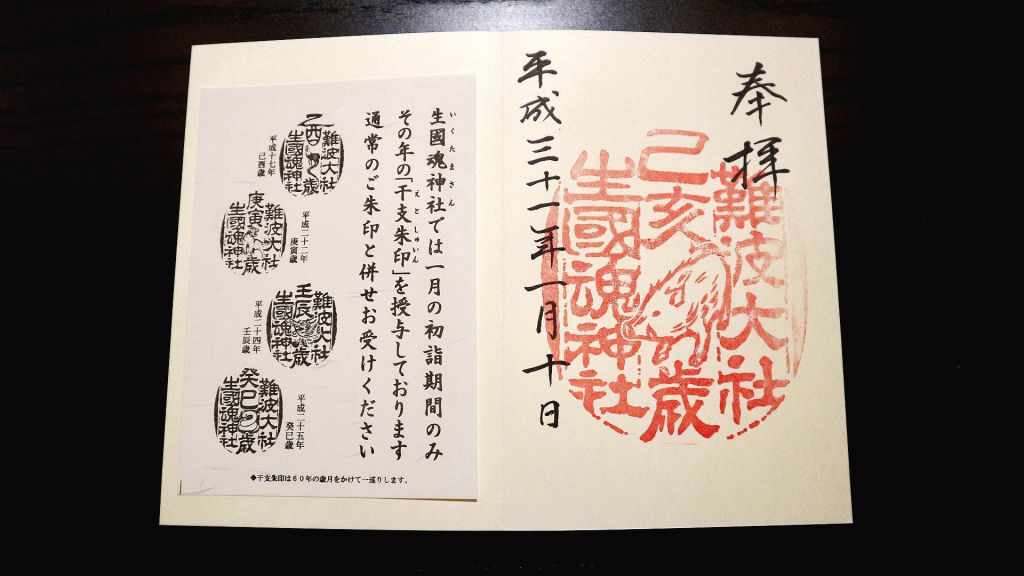 奉拝
難波大社
己亥歳
生國魂神社
平成三十一年一月十日
いくたまさん
生國魂神社では一月の初詣期間のみ
えとしゅいん
その年の「干支朱印」を授与しております
通常のご朱印と併せお受けください
難波大社
乙酉歳
生國魂神社
平成十七年
己酉歳
平成二十二年
庚寅歳
難波大社
庚寅歳
生國魂神社
難波大社
壬辰歳
生國魂神社
平成二十四年
壬辰歳
平成二十五年
癸巳歳
難波大社
癸巳歳
生國魂神社
◆干支朱印は60年の歳月をかけて一巡りします。